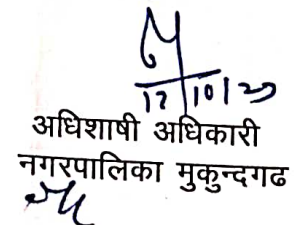 12/10/23
अधिशाषी अधिकारी
नगरपालिका मुकुन्दगढ